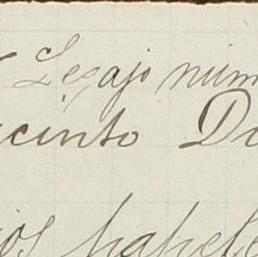 Legajo núm
cinto D
ios papele